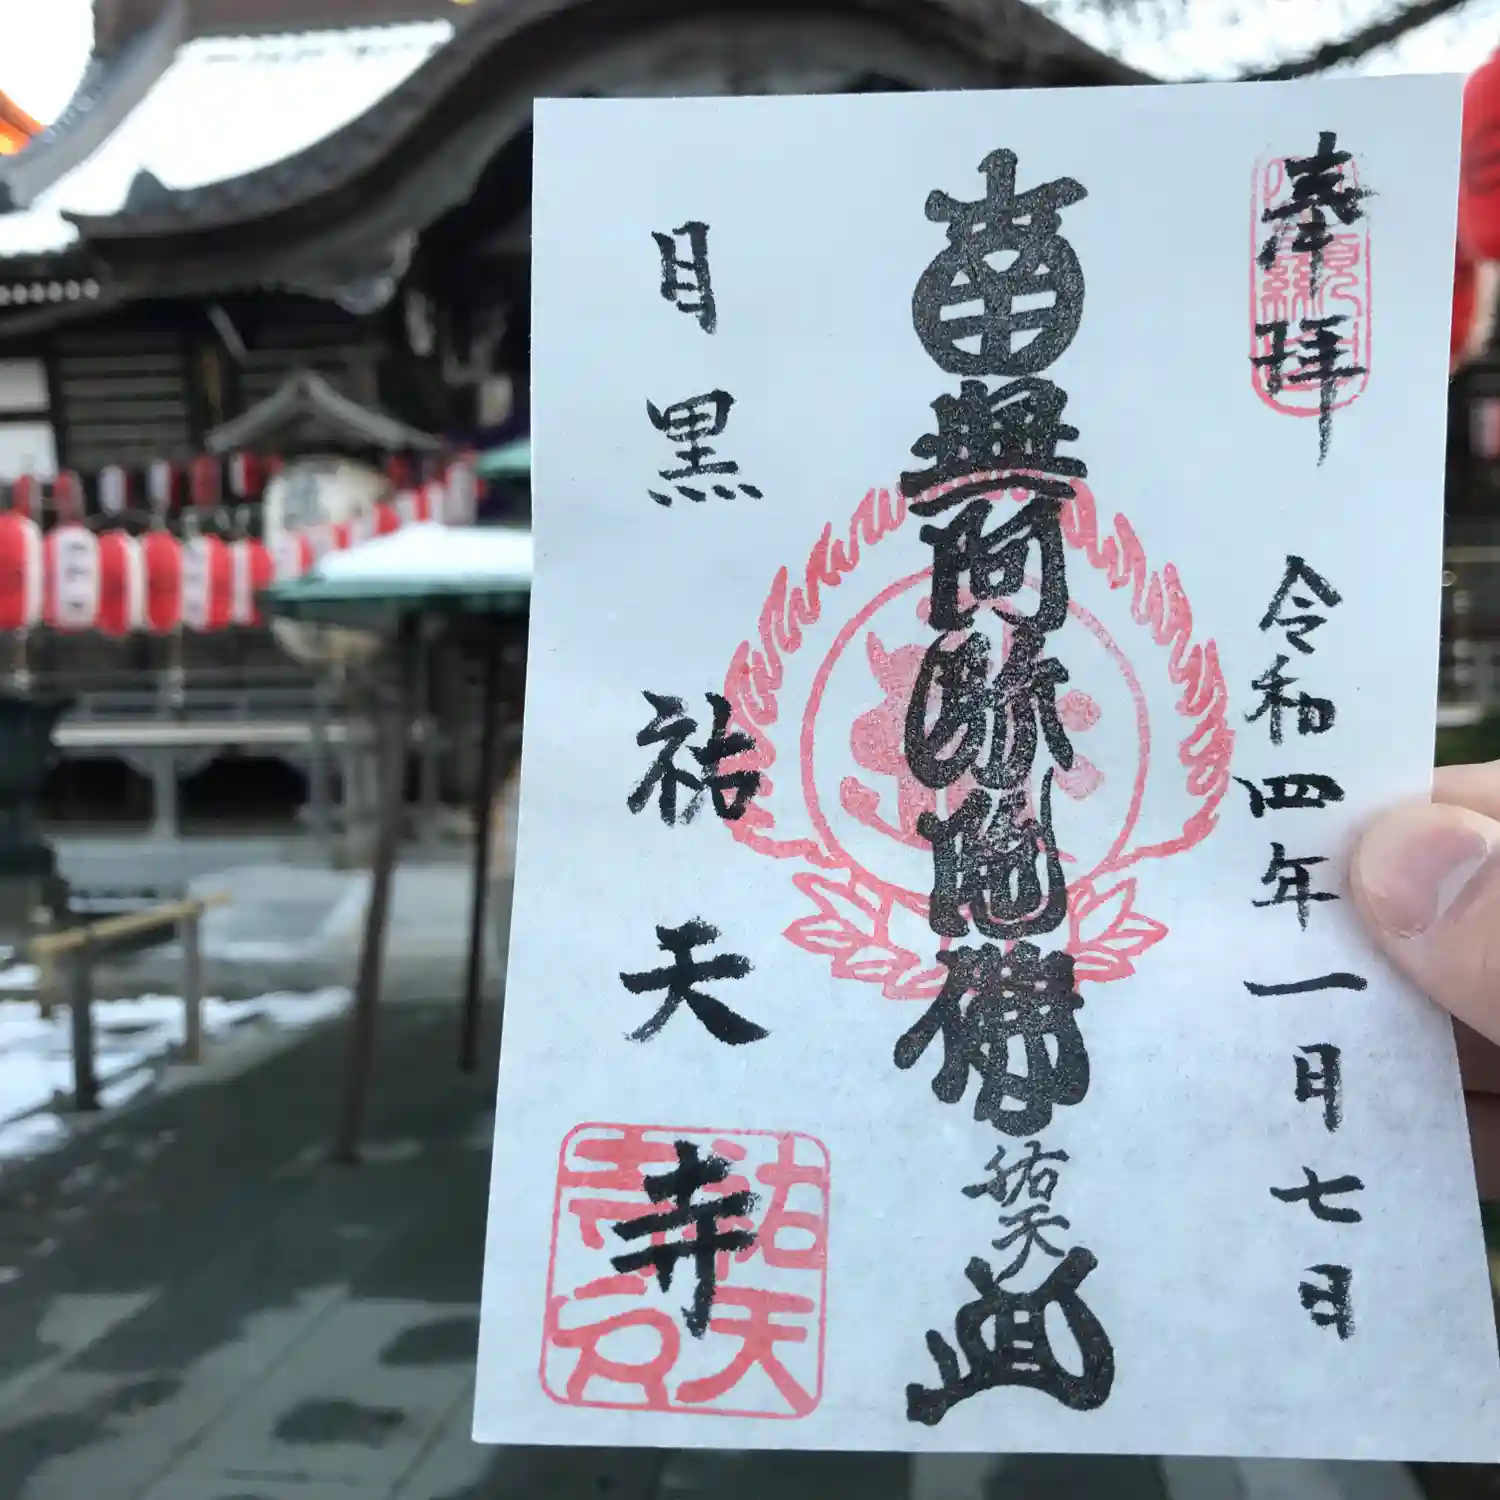 奉拝
令和四年一月七日
南無阿弥陀佛
祐天
目黒
祐天寺
祐天
寺